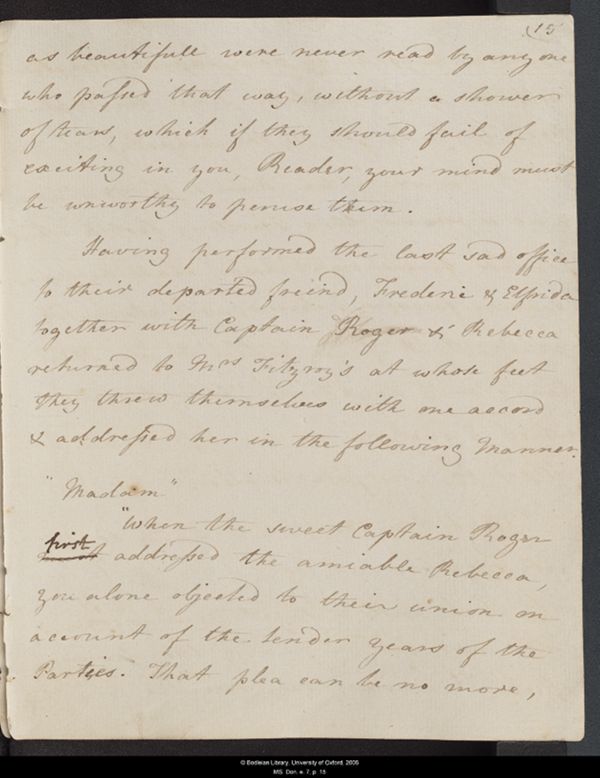 15
as beautifull were never read by any one
who passed that way, without a shower
of tears, which if they should fail of
exciting in you, Reader, your mind must
be unworthy to peruse them.
Having performed the last sad office
to their departed freind, Frederic & Elfrida
together with Captain Roger & Rebecca
returned to Mrs Fitzroy's at whose feet
they threw themselves with one accord
& addressed her in the following Manner.
"Madam"
"When the sweet Captain Roger
first addressed the amiable Rebecca,
you alone objected to their union on
account of the tender years of the
Parties. That plea can be no more,
© Bodleian Library, University of Oxford, 2005
MS. Don. e. 7, p. 15